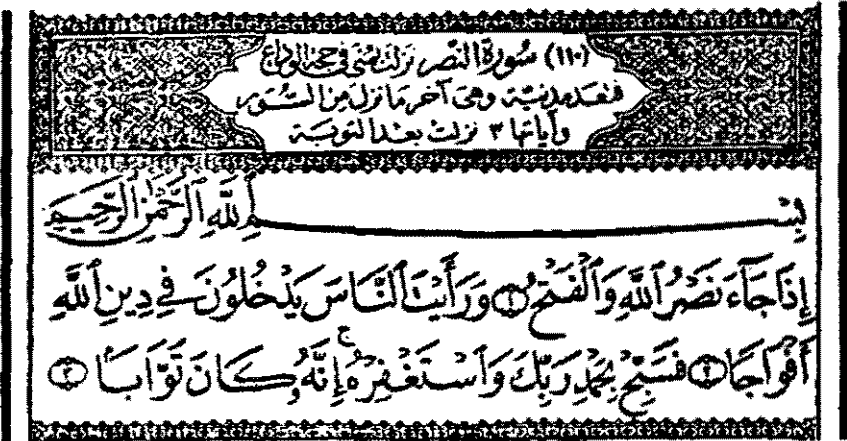 (١١٠) سُورَةُ النَّصْر نَزَلَتْ بِمِنًى فِي حِجَّةِ الوَدَاع
فَتُعَدُّ مَدَنِيَّة وَهِيَ آخِر مَا نَزَلَ مِنَ السُّوَر
وَآيَاتُهَا ٣ نَزَلَتْ بَعْدَ التَّوْبَة
بِسْمِ ٱللَّهِ ٱلرَّحْمَٰنِ ٱلرَّحِيمِ
إِذَا جَآءَ نَصْرُ ٱللَّهِ وَٱلْفَتْحُ ١ وَرَأَيْتَ ٱلنَّاسَ يَدْخُلُونَ فِي دِينِ ٱللَّهِ
أَفْوَاجًا ٢ فَسَبِّحْ بِحَمْدِ رَبِّكَ وَٱسْتَغْفِرْهُ ۚ إِنَّهُۥ كَانَ تَوَّابًۢا ٣